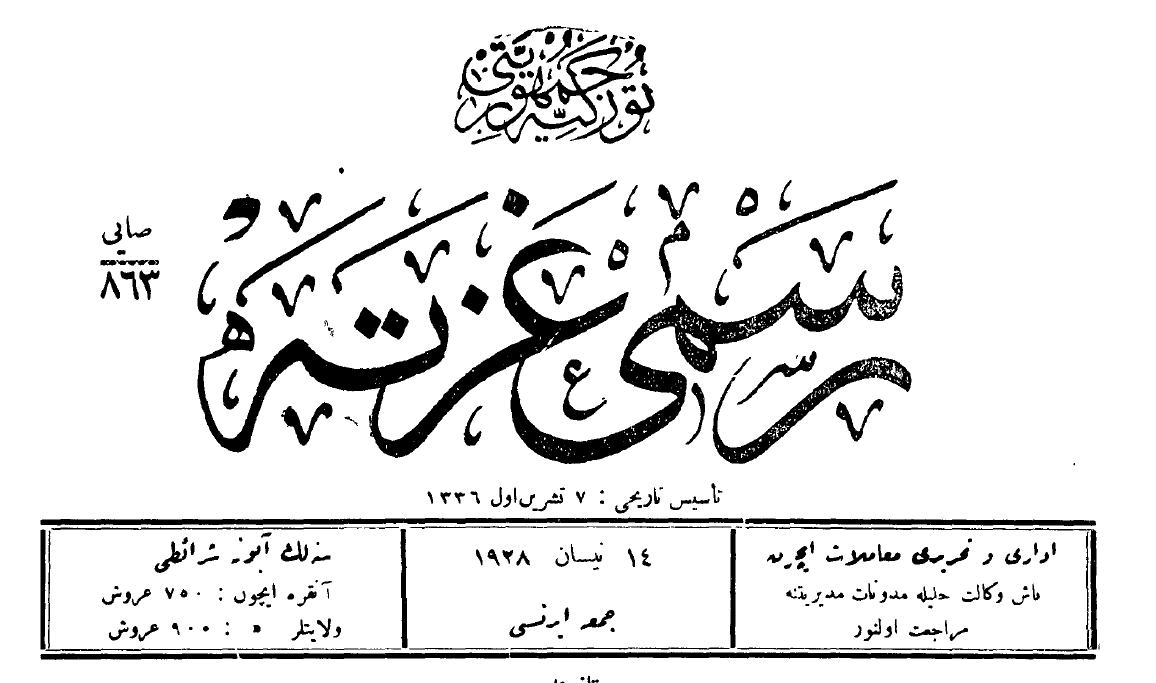 توركيه جمهوريتى
رسمى غزته
صايى
٨٦٣
تأسيس تاريخى : ٧ تشرين اول ١٣٣٦
ادارى و تحريرى معاملات ايچون
باش وكالت جليله مدونات مديريتنه
مراجعت اولنور
١٤ نيسان ١٩٢٨
جمعه ايرتسى
سنه لك آبونه شرائطى
آنقره ايچون : ٧٥٠ غروش
ولايتلر » : ٩٠٠ غروش